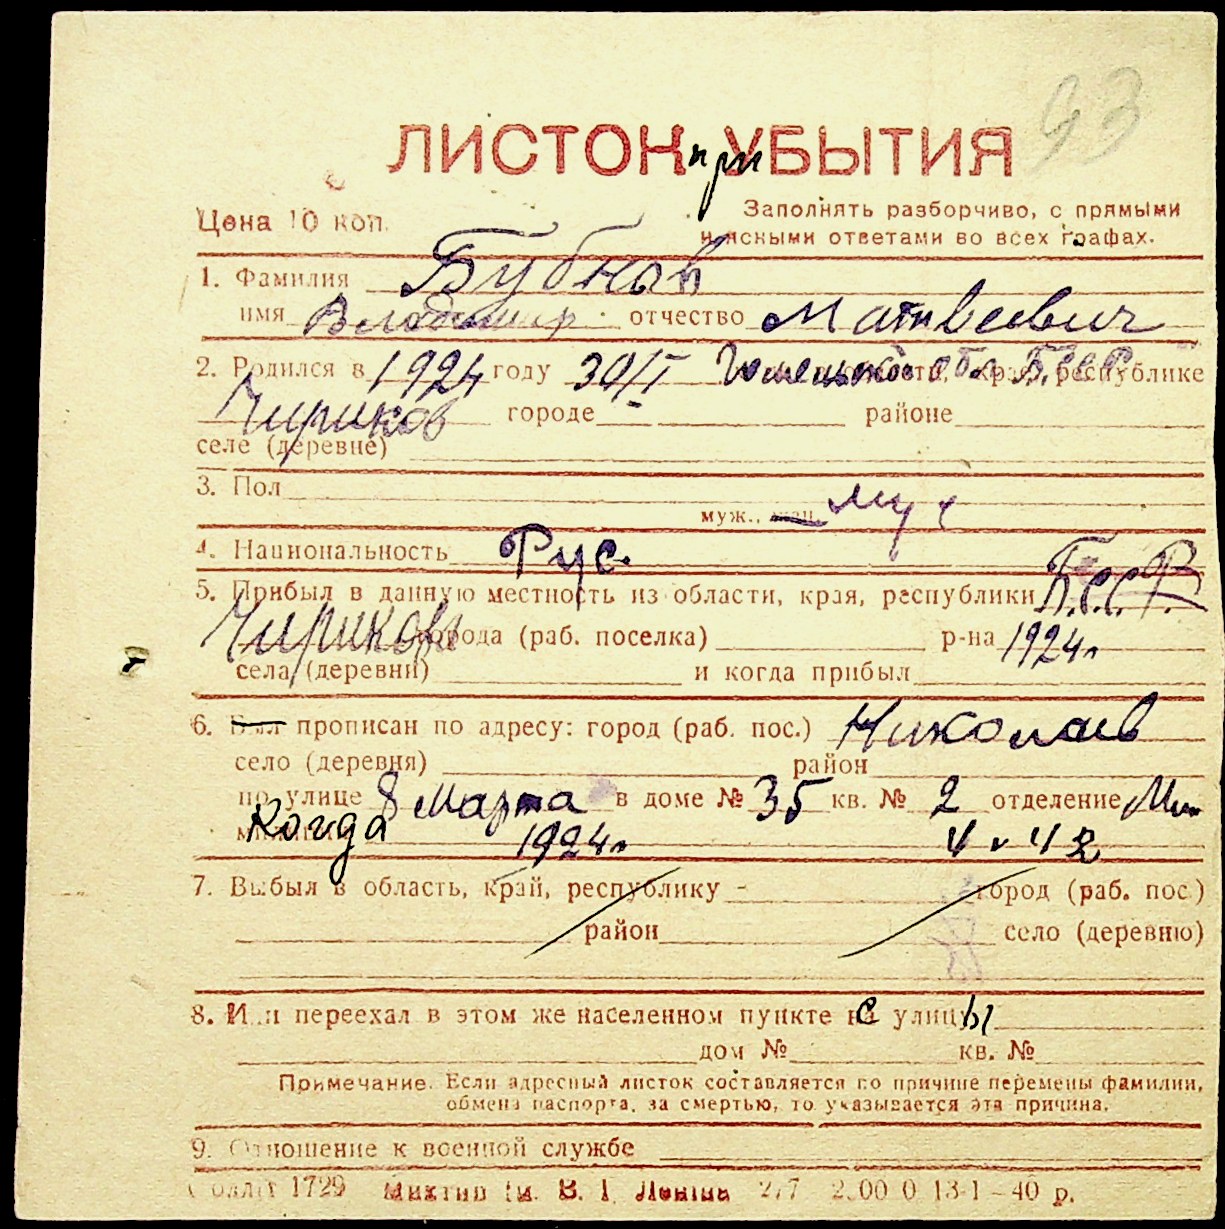 93
ЛИСТОК при УБЫТИЯ
Цена 10 коп.
Заполнять разборчиво, с прямыми
и ясными ответами во всех графах.
1. Фамилия Бубнов
имя Владимир отчество Матвеевич
2. Родился в 1924 году 30/I Гомельской обл. Б.С.С.Р. области, края, республике
Чириков городе — районе
селе (деревне)
3. Пол
муж., жен. муж
4. Национальность Рус.
5. Прибыл в данную местность из области, края, республики Б.С.С.Р.
Чириков города (раб. поселка) р-на 1924г
села (деревни) и когда прибыл
6. Был прописан по адресу: город (раб. пос.) Николаев
село (деревня) район
по улице 8 Марта в доме № 35 кв. № 2 отделение
милиции Когда 1924г
7. Выбыл в область, край, республику - город (раб. пос.)
район село (деревню)
8. Или переехал в этом же населенном пункте с улицы
дом № кв. №
Примечание. Если адресный листок составляется по причине перемены фамилии,
обмена паспорта, за смертью, то указывается эта причина.
9. Отношение к военной службе
1729 им. В. І. Леніна 13-1-40 р.